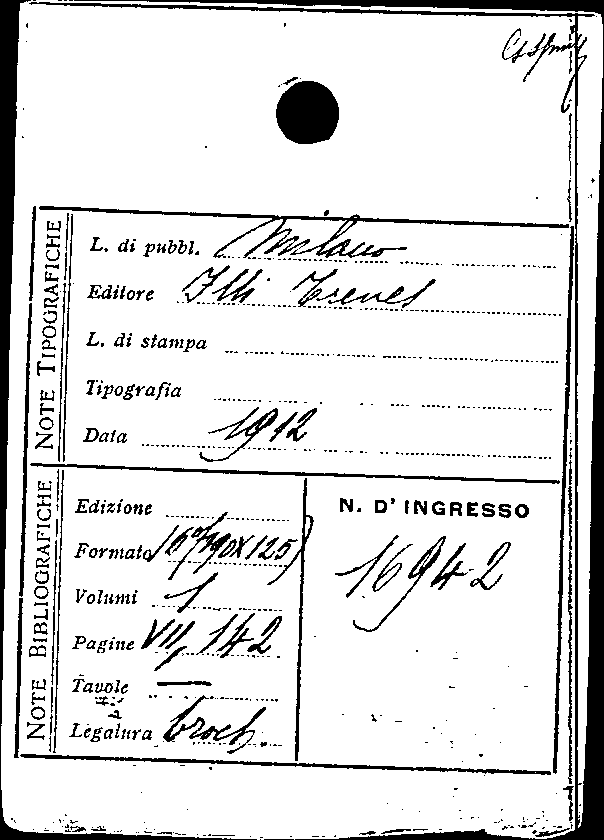 NOTE TIPOGRAFICHE
L. di pubbl. Milano
Editore Flli Treves
L. di stampa
Tipografia
Data 1912
NOTE BIBLIOGRAFICHE
Edizione
Formato 16°(190X125)
Volumi 1
Pagine VII, 142
Tavole —
Legatura broch.
N. D' INGRESSO
16942